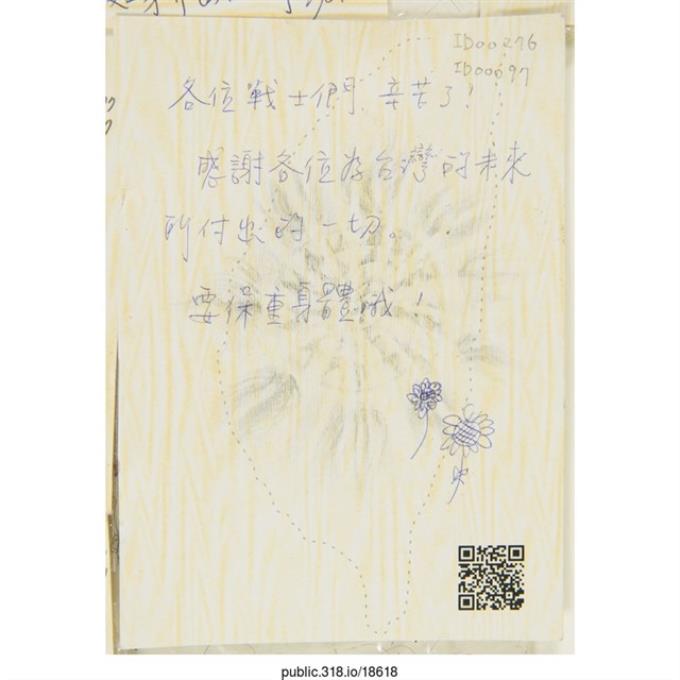 ID00276
ID00097
各位戰士們 辛苦了!
感謝各位為台灣的未來
所付出的一切。
要保重身體哦!
public.318.io/18618